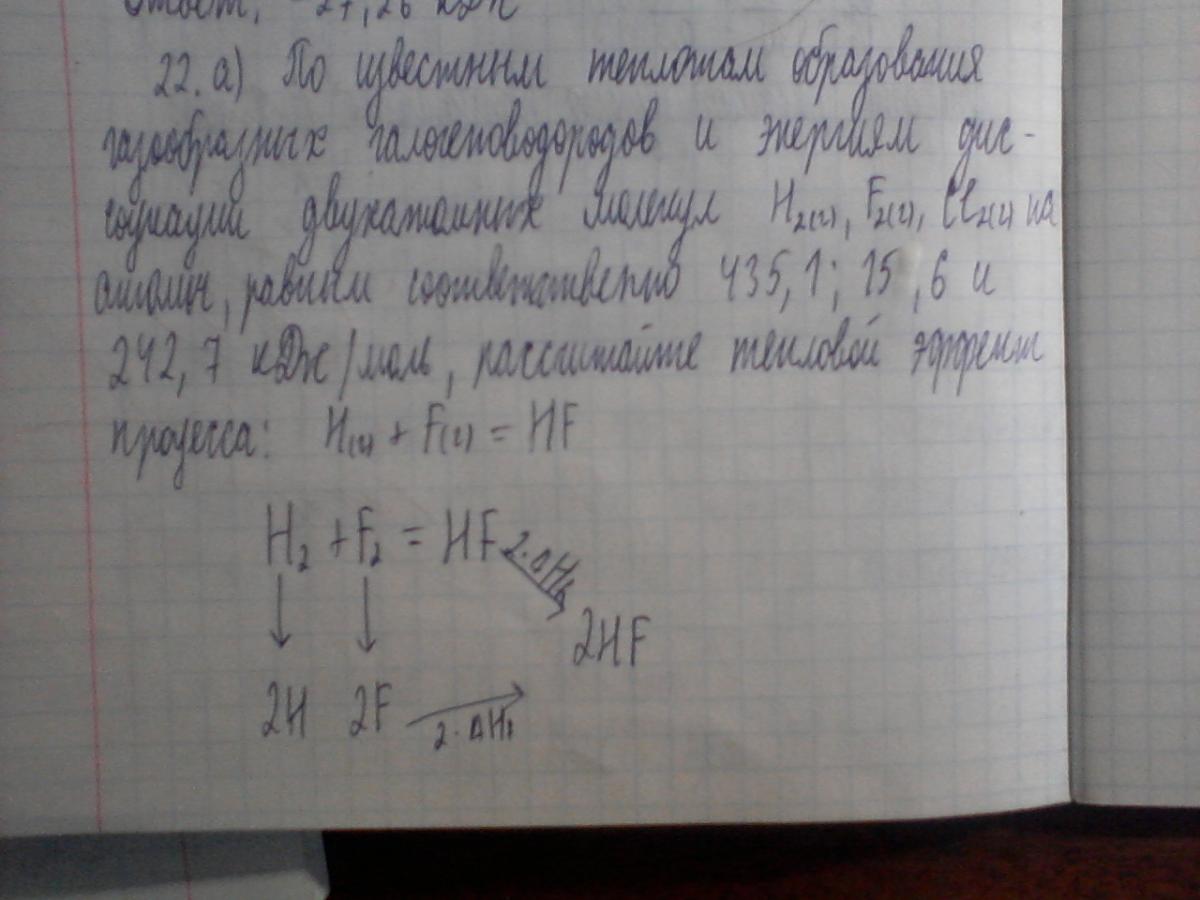 Ответ: -27,26 кДж
22. а) По известным теплотам образования
газообразных галогеноводородов и энергиям дис-
социации двухатомных молекул H₂(г), F₂(г), Cl₂(г) на
атомы, равным соответственно 435,1; 15 ,6 и
242,7 кДж/моль, рассчитайте тепловой эффект
процесса: H(г) + F(г) = HF
H₂ + F₂ = HF 2·ΔH₂
2HF
2H 2F 2·ΔH₁